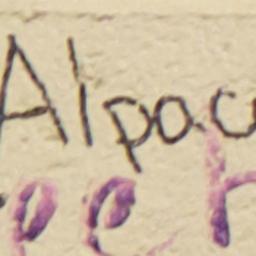 Alpac
eer